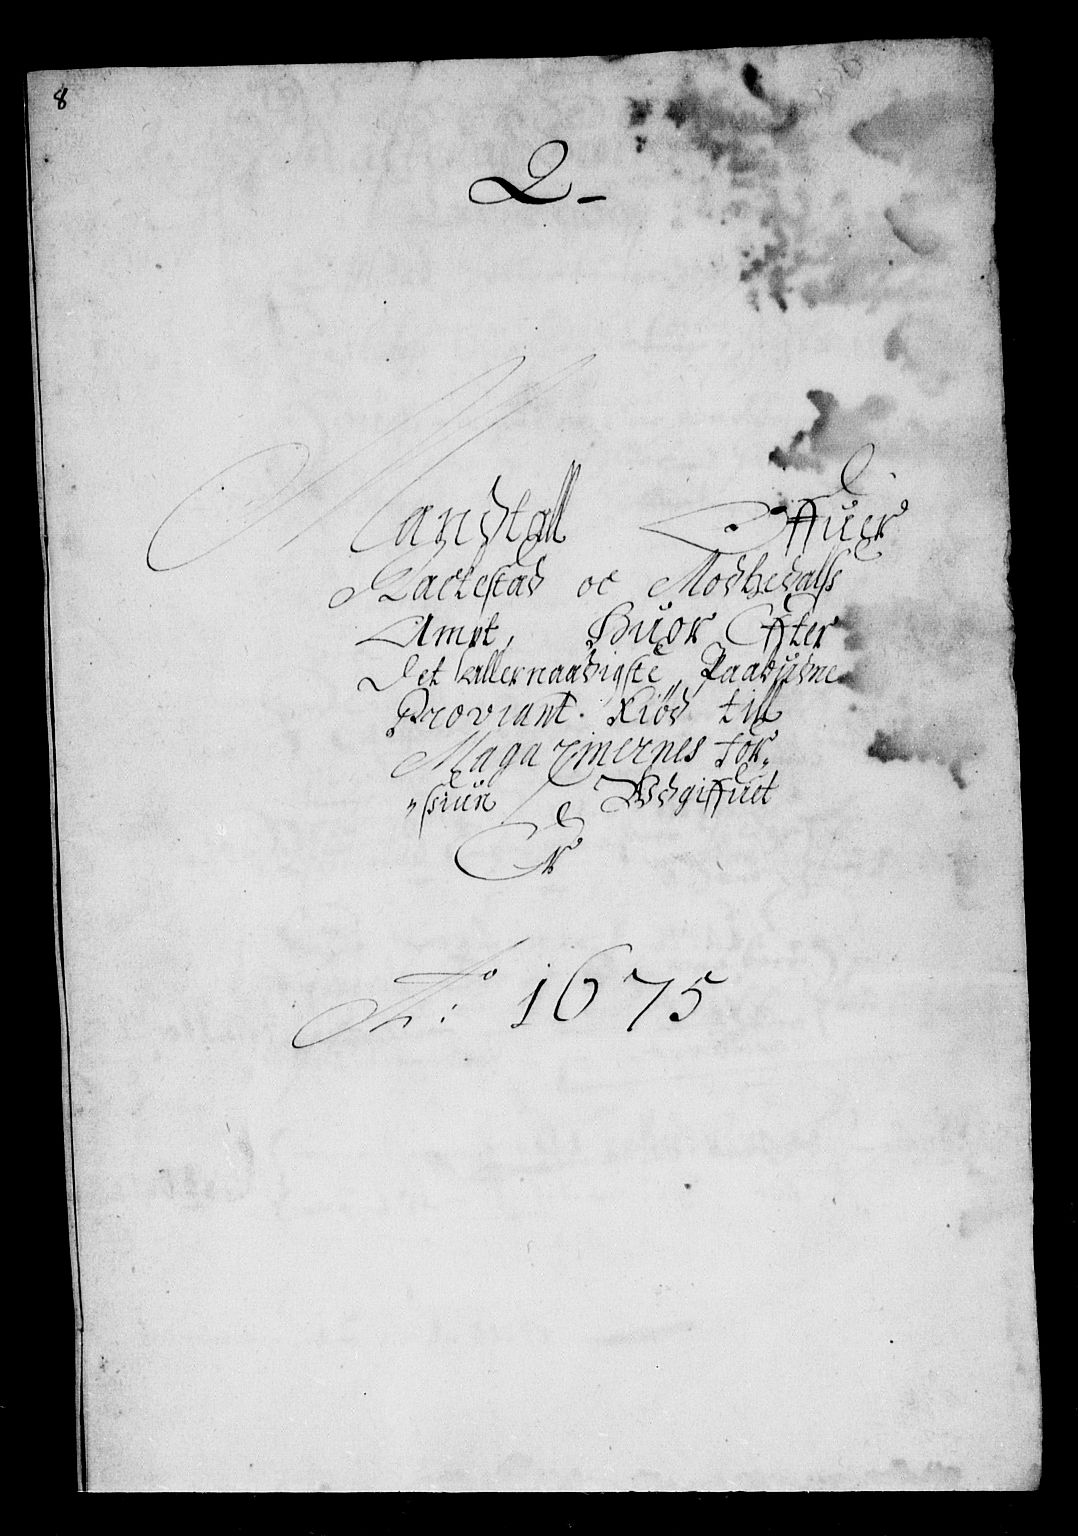 8
Q-
Mandtall Offuer
Rackestad oc Modhedalss
Ampt, Huor Effter
Det allernaadigste Paabudne
Proviant Kiød till
Magazinernes for=
=ssiun Udgiffuet
Er
Ao: 1675